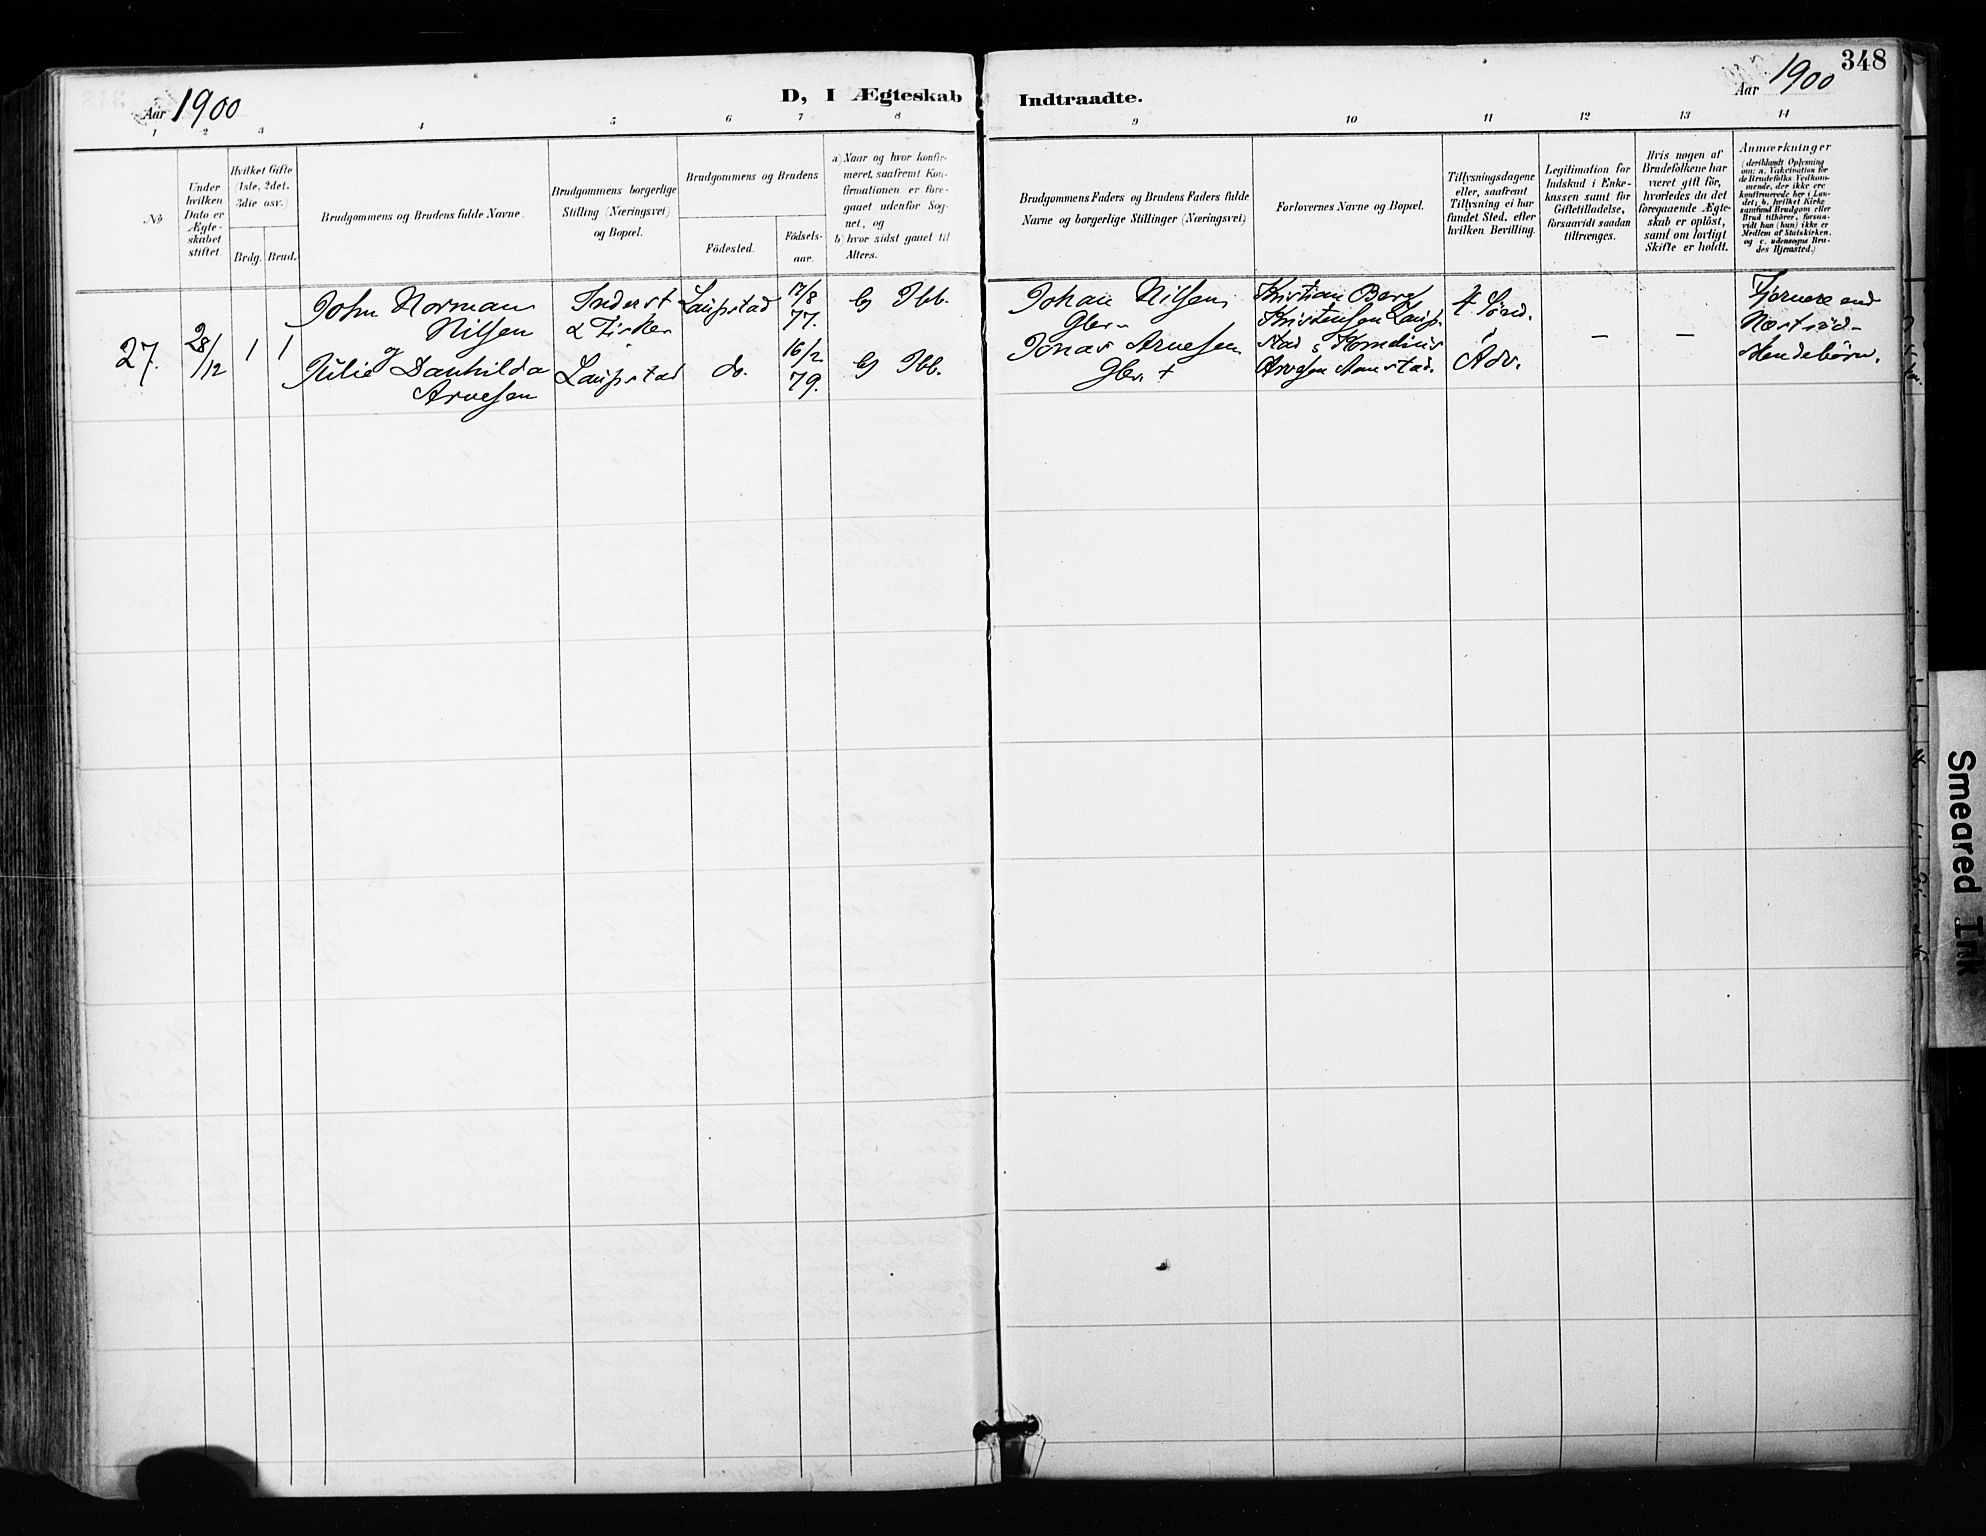 348
Aar 1900
D, I Ægteskab Indtraadte.
Aar 1900
1 2 3 4 5 6 7 8 9 10 11 12 13 14
No
Under hvilken Dato er Ægteskabet stiftet.
Hvilket Gifte (1ste, 2det, 3die osv.)
Brdg. Brud.
Brudgommens og Brudens fulde Navne.
Brudgommens borgerlige Stilling (Næringsvei) og Bopæl.
Brudgommens og Brudens
Födested.
Födselsaar.
a) Naar og hvor konfirmeret, saafremt Konfirmationen er foregaaet udenfor Sognet, og
b) hvor sidst gaaet til Alters.
Brudgommens Faders og Brudens Faders fulde Navne og borgerlige Stillinger (Næringsvei)
Forlovernes Navne og Bopæl.
Tillysningsdagene eller, saafremt Tillysning ei har fundet Sted, efter hvilken Bevilling.
Legitimation for Indskud i Enkekassen samt for Giftetilladelse, forsaavidt saadan tiltrænges.
Hvis nogen af Brudefolkene har været gift för, hvorledes da det foregaaende Ægteskab er oplöst, samt om lovligt Skifte er holdt.
Anmærkninger
(deriblandt Oplysning om: a. Vakcination for de Brudefolks Vedkommende, der ikke ere konfirmerede her i Landet; b. hvilket Kirkesamfund Brudgom eller Brud tilhörer, forsaavidt han (hun) ikke er Medlem af Statskirken, og c. udensogns Brudes Hjemsted.)
27. 28/12 1 1
John Norman Nilsen
og
Julie Danhilda Arnesen
Inderst & Fisker
Laupstad
Laupstad
do.
17/8 77.
16/2 79.
b) Ibb.
b) Ibb.
Johan Nilsen
Gbr.
Jonas Arnesen
Gbr. +
Kristian Berg
Kristensen Laupstad & Kornelius
Arnesen
4 Sönd.
i Adv.
–
–
Fjernere end
Næstsöd-
skendebörn.
Smeared Ink